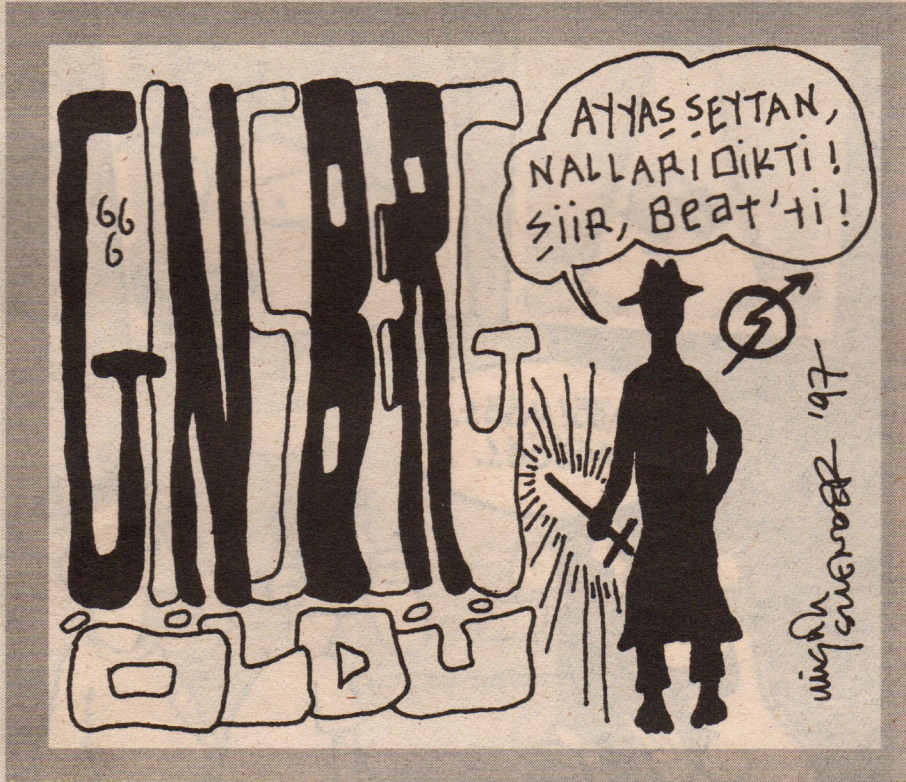 GINSBERG
66
6
ÖLDÜ
AYYAŞ ŞEYTAN,
NALLARI DİKTİ!
ŞİİR, Beat'ti!
'97